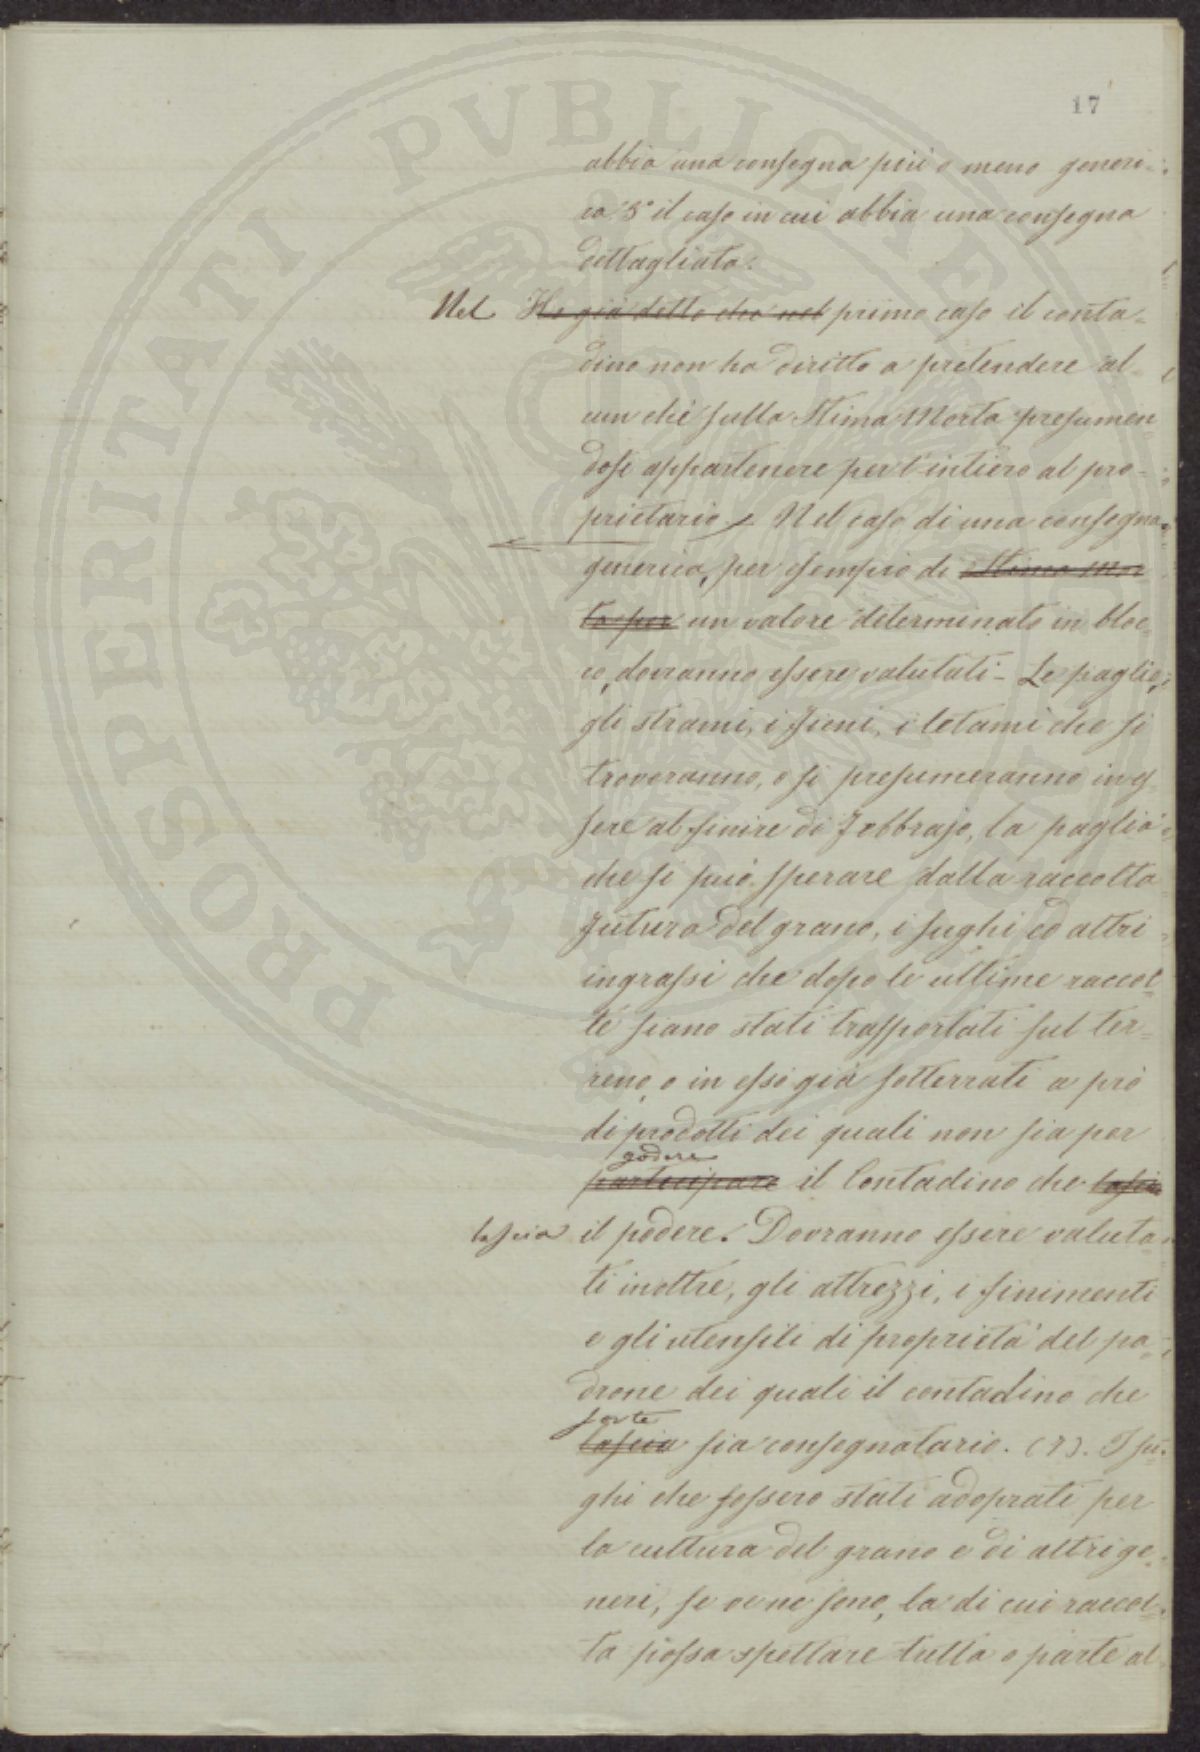 17
abbia una consegna più o meno generi-
ca 3° il caso in cui abbia una consegna
dettagliata.
Nel Ho già detto che nel primo caso il conta-
dino non ha diritto a pretendere al-
cun chè sulla Stima Morta presumen-
dosi appartenere per l'intiero al pro-
prietario. Nel caso di una consegna
generica, per esempio di Stima Mor
ta per un valore determinato in bloc-
co, dovranno essere valutati - Le paglie,
gli strami, i fieni, i letami che si
troveranno, o si presumeranno in es-
sere al finire di Febbrajo, la paglia
che si può sperare dalla raccolta
futura del grano, i sughi ed altri
ingrassi che dopo le ultime raccol-
te siano stati trasportati sul ter-
reno, o in esso già sotterrati a prò
di prodotti dei quali non sia per
godere
participare il Contadino che lascia
lascia il podere. Dovranno essere valuta-
ti inoltre, gli attrezzi, i finimenti
e gli utensili di proprietà del pa-
drone dei quali il contadino che
sorte
lascia sia consegnatario. (7). I su-
ghi che fossero stati adoprati per
la cultura del grano e di altri ge-
neri, se ve ne sono, la di cui raccol-
ta possa spettare tutta o parte al
PROSPERITATI PVBLICAE